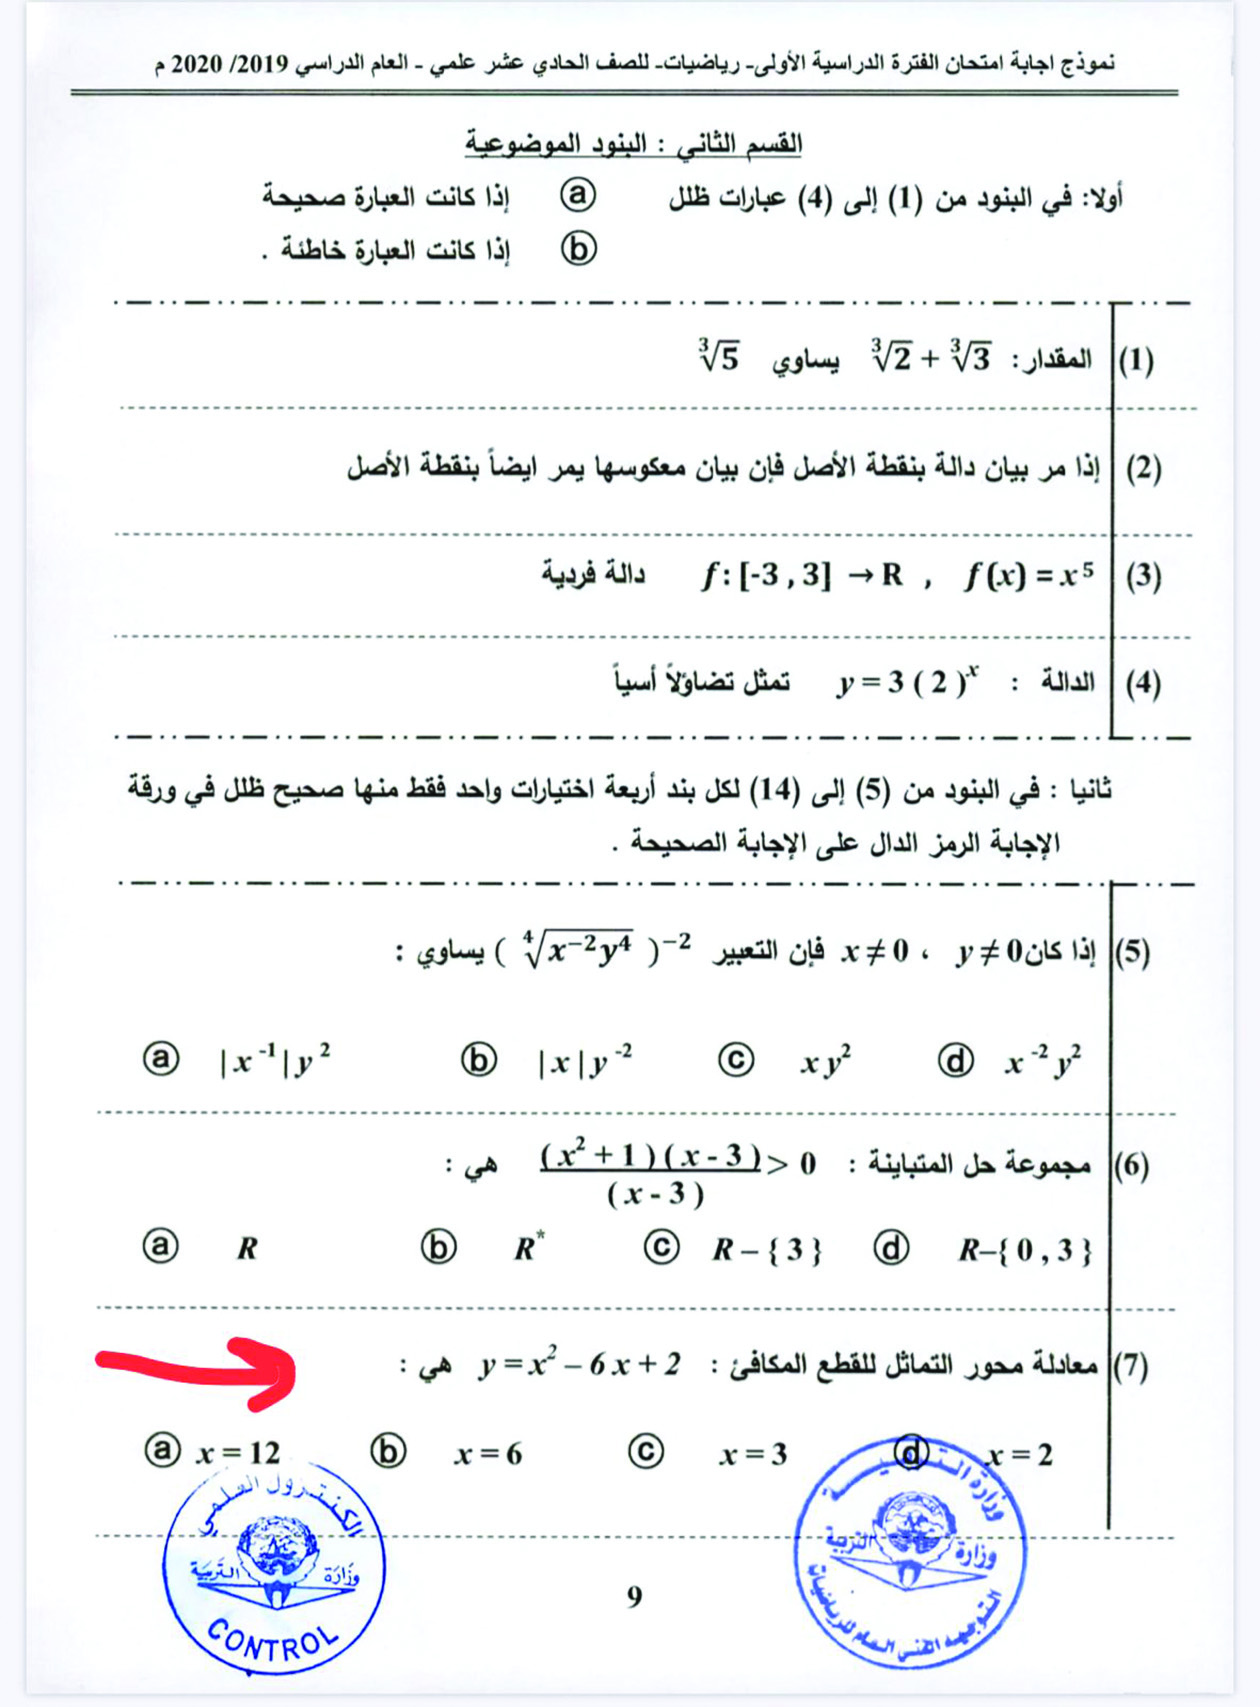 نموذج اجابة امتحان الفترة الدراسية الأولى- رياضيات- للصف الحادي عشر علمي - العام الدراسي 2019/ 2020 م
القسم الثاني : البنود الموضوعية
أولا: في البنود من (1) إلى (4) عبارات ظلل ⓐ إذا كانت العبارة صحيحة
ⓑ إذا كانت العبارة خاطئة .
(1) المقدار: ∛2 + ∛3 يساوي ∛5
(2) إذا مر بيان دالة بنقطة الأصل فإن بيان معكوسها يمر ايضاً بنقطة الأصل
(3) f : [-3 , 3] → R , f (x) = x⁵ دالة فردية
(4) الدالة : y = 3 ( 2 )ˣ تمثل تضاؤلاً أسياً
ثانيا : في البنود من (5) إلى (14) لكل بند أربعة اختيارات واحد فقط منها صحيح ظلل في ورقة
الإجابة الرمز الدال على الإجابة الصحيحة .
(5) إذا كان y ≠ 0 ، x ≠ 0 فإن التعبير ( ∜(x⁻²y⁴) )⁻² يساوي :
ⓐ | x⁻¹ | y² ⓑ | x | y⁻² ⓒ x y² ⓓ x⁻² y²
(6) مجموعة حل المتباينة : (x² + 1 ) ( x - 3 ) / ( x - 3 ) > 0 هي :
ⓐ R ⓑ R* ⓒ R – { 3 } ⓓ R–{ 0 , 3 }
(7) معادلة محور التماثل للقطع المكافئ : y = x² – 6 x + 2 هي :
ⓐ x = 12 ⓑ x = 6 ⓒ x = 3 ⓓ x = 2
الكنترول العلمي
وزارة التربية
CONTROL
وزارة التربية
وزارة التربية
التوجيه الفني العام للرياضيات
9